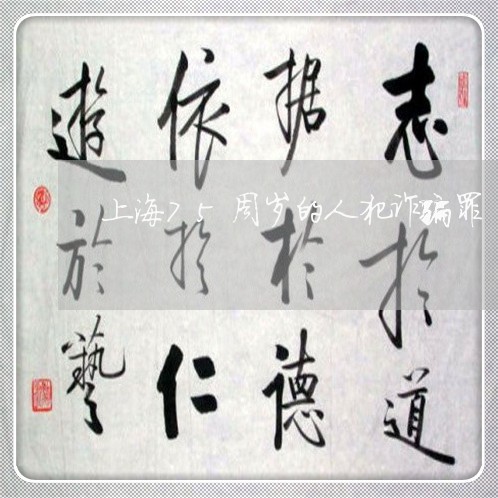 志於道
据於德
依於仁
遊於藝
上海75周岁的人犯诈骗罪